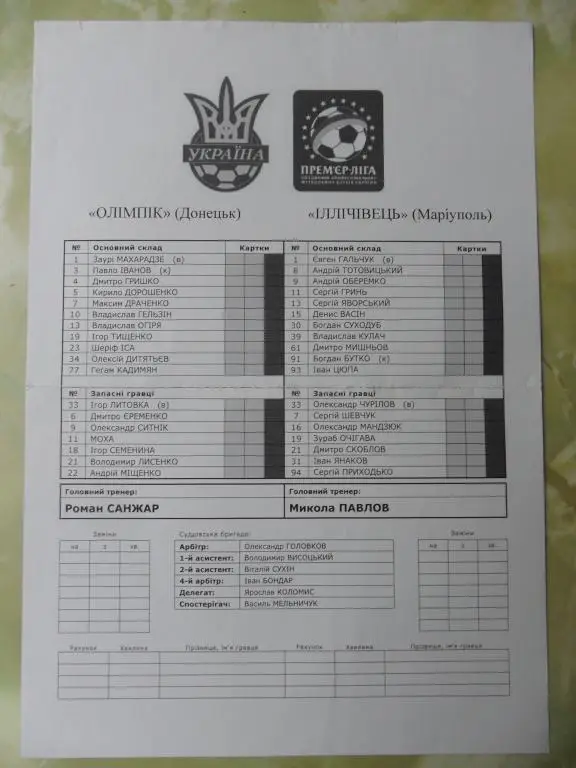 УКРАЇНА
ПРЕМ'ЄР-ЛІГА
«ОЛІМПІК» (Донецьк)
«ІЛЛІЧІВЕЦЬ» (Маріуполь)
№ Основний склад Картки № Основний склад Картки
1 Заурі МАХАРАДЗЕ (в) 1 Євген ГАЛЬЧУК (в)
3 Павло ІВАНОВ (к) 8 Андрій ТОТОВИЦЬКИЙ
4 Дмитро ГРИШКО 9 Андрій ОБЕРЕМКО
5 Кирило ДОРОШЕНКО 11 Сергій ГРИНЬ
7 Максин ДРАЧЕНКО 13 Сергій ЯВОРСЬКИЙ
10 Владислав ГЕЛЬЗІН 15 Денис ВАСІН
13 Владислав ОГІРЯ 30 Богдан СУХОДУБ
19 Ігор ТИЩЕНКО 39 Владислав КУЛАЧ
23 Шеріф ІСА 61 Дмитро МИШНЬОВ
34 Олексій ДИТЯТЬЄВ 91 Богдан БУТКО (к)
77 Гегам КАДИМЯН 93 Іван ЦЮПА
Запасні гравці Запасні гравці
33 Ігор ЛИТОВКА (в) 33 Олександр ЧУРІЛОВ (в)
6 Дмитро ЄРЕМЕНКО 7 Сергій ШЕВЧУК
9 Олександр СИТНІК 16 Олександр МАНДЗЮК
11 МОХА 19 Зураб ОЧІГАВА
18 Ігор СЕМЕНИНА 21 Дмитро СКОБЛОВ
21 Володимир ЛИСЕНКО 31 Іван ЯНАКОВ
22 Андрій МІЩЕНКО 94 Сергій ПРИХОДЬКО
Головний тренер: Головний тренер:
Роман САНЖАР Микола ПАВЛОВ
Заміни Суддівська бригада: Заміни
на з хв. Арбітр: Олександр ГОЛОВКОВ на з хв.
1-й асистент: Володимир ВИСОЦЬКИЙ
2-й асистент: Віталій СУХІН
4-й арбітр: Іван БОНДАР
Делегат: Ярослав КОЛОМИС
Спостерігач: Василь МЕЛЬНИЧУК
Рахунок Хвилина Прізвище, ім'я гравця Рахунок Хвилина Прізвище, ім'я гравця